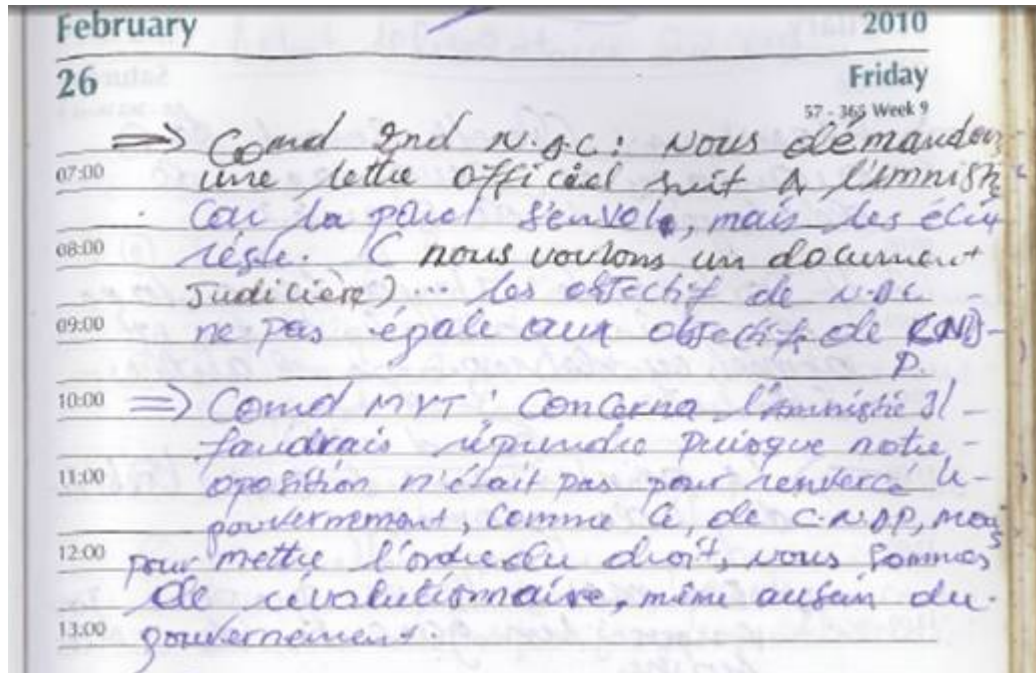 February 2010
26 Friday
57 - 365 Week 9
=> Comd 2nd N.D.C: Nous démandons
07:00 une lettre officiel suit à l'amnisti
car la parol s'envole, mais les écrit
08:00 réste. ( nous voulons un document
Judicière) ... les objectif de N.DC
09:00 ne pas égale aux objectifs de CND-
P.
10:00 => Comd MVT: Concerna l'amnistié Il
faudrais répundre puisque notre
11:00 oposition n'était pas pour renversé le
gouvernement, comme ce, de C.N.DP, mais
12:00 pour mettre l'ordre du droit, nous sommes
de révolutionnaire, même ausein du
13:00 gouvernement.